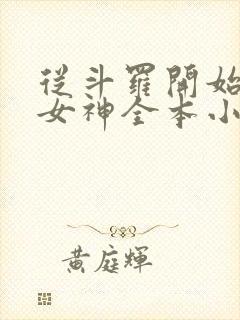 從斗羅開始
女神全本小
黃庭輝